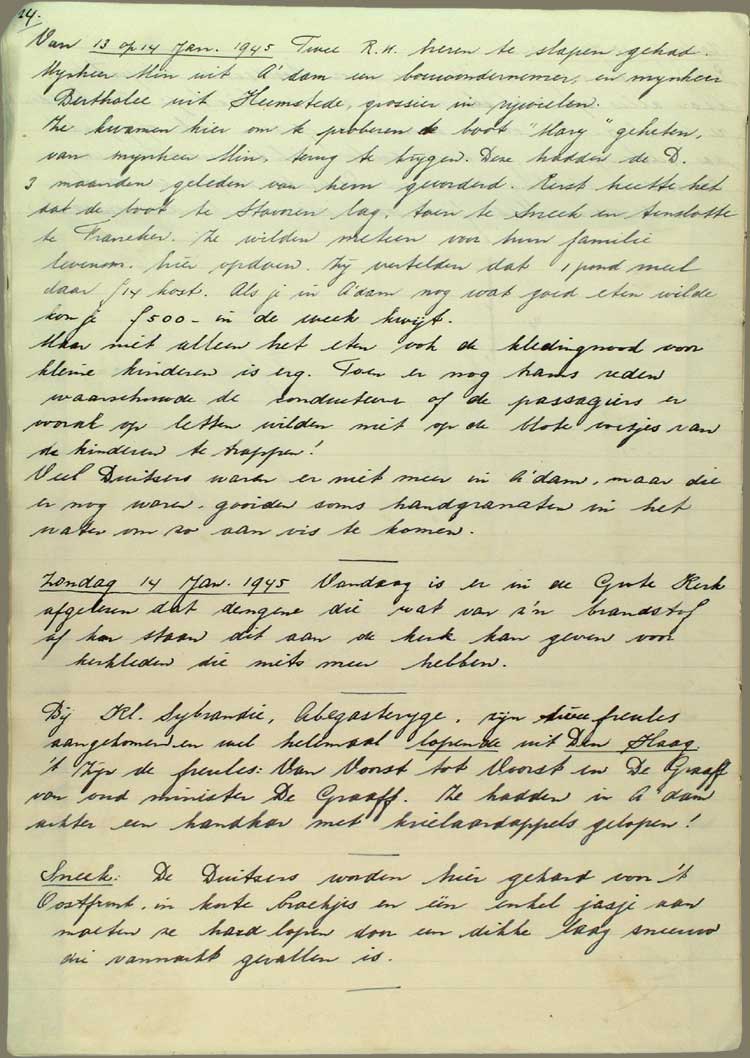 24.
Van 13 op 14 Jan. 1945 Twee R.K. heren te slapen gehad.
Mijnheer Min uit A'dam een bouwondernemer, en mijnheer
Bertholee uit Heemstede, grossier in rijwielen.
Ze kwamen hier om te proberen de boot "Mary" geheten,
van mijnheer Min, terug te krijgen. Deze hadden de D.
3 maanden geleden van hem gevorderd. Eerst heette het
dat de boot te Stavoren lag, toen te Sneek en tenslotte
te Franeker. Ze wilden meteen voor hun familie
levensm. hier opdoen. Zij vertelden dat 1 pond meel
daar ƒ14 kost. Als je in A'dam nog wat goed eten wilde
kon je ƒ500- in de week kwijt.
Maar niet alleen het eten ook de kledingnood voor
kleine kinderen is erg. Toen er nog trams reden
waarschuwde de conducteur of de passagiers er
vooral op letten wilden niet op de blote voetjes van
de kinderen te trappen!
Veel Duitsers waren er niet meer in A'dam, maar die
er nog waren, gooiden soms handgranaten in het
water om zo aan vis te komen.
Zondag 14 Jan. 1945 Vandaag is er in de Grote Kerk
afgelezen dat dengene die wat van z'n brandstof
af kan staan dit aan de kerk kan geven voor
kerkleden die niets meer hebben.
Bij Kl. Sybrandie, Abbegasterijge, zijn twee freules
aangekomen en wel helemaal lopende uit Den Haag.
't Zijn de freules: Van Voorst tot Voorst en De Graaff
van oud minister De Graaff. Ze hadden in A'dam
achter een handkar met krielaardappels gelopen!
Sneek: De Duitsers worden hier gehard voor 't
Oostfront, in korte broekjes en één enkel jasje aan
moeten ze hard lopen door een dikke laag sneeuw
die vannacht gevallen is.